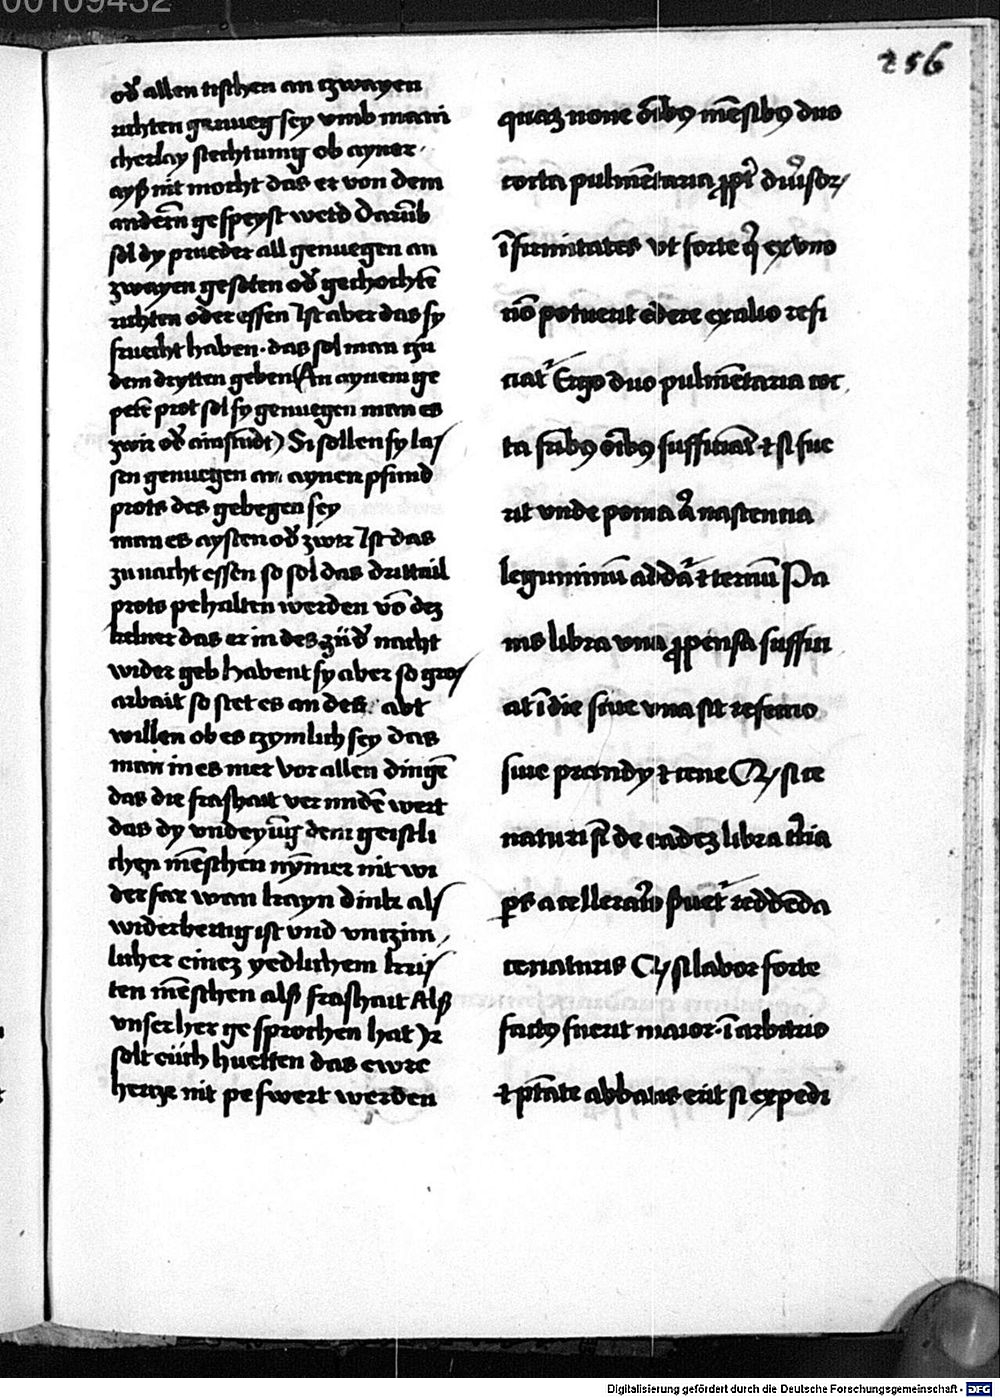 00109432
256
od̕ allen tischen an tzwayen
richten genueg sey vmb mani
cherlay siechtumig ob ayner
ayß nit mocht das er von dem
anderm gespeyst werd Darūb
sol dy prueder all genuegen an
zwayen gesoten od̕ gechochtē
richten oder essen Ist aber das sy
fruecht haben · das sol man tzu
dem drytten geben (An aynem ge
petē prot sol sy genuegen man es
zwir od̕ ainstūdt) Si sollen sy las
sen genuegen an aynen pfund
prots des gebegen sey
man es aysten od̕ zwir Ist das
zu nacht essen so sol das drittail
prots pehalten werden vō dez
kelner das er in des zūd̕ nacht
wider geb habent sy aber so gros
arbait so stet es an des abt
willen ob es tzymlich sey das
man in es mer vor allen dingē
das die frashait vermidē wert
das dy vndeyūg dem geistli
chen mēschen nȳmer nit wi
der far wan kayn dink als
widerbertig ist vnd vntzim
licher einez yedlichem kris
ten mēschen alß frashait Alß
vnser her gesprochen hat Ir
solt eüch huetten das ewre
hertze nit peswert werden
quaz none oībꝯ mēsibꝯ duo
cocta pulmētaria ꝓpt̕ diūsor
īfirmitates vt forte q̄ ex vno
nō potuerit edere ex alio refi
ciat̕ Ergo duo pulmētaria coc
ta fr̄ibꝯ oībꝯ sufficiāt ⁊ si fue
rit vnde poma aū nascencia
leguminū addat̕ ⁊ terciū Pa
nis libra vna ꝓpensa suffici
at ī die siue vna sit refectio
siue prandy ⁊ cene Qꝫ si ce
naturi sūt de eadez libra t̕cia
ꝑs a cellerario s̕uet̕ reddēda
cenaturis Qꝫ si labor forte
factꝯ fuerit maior · ī arbitrio
⁊ ptāte abbatis erit si expedi
Digitalisierung gefördert durch die Deutsche Forschungsgemeinschaft - DFG